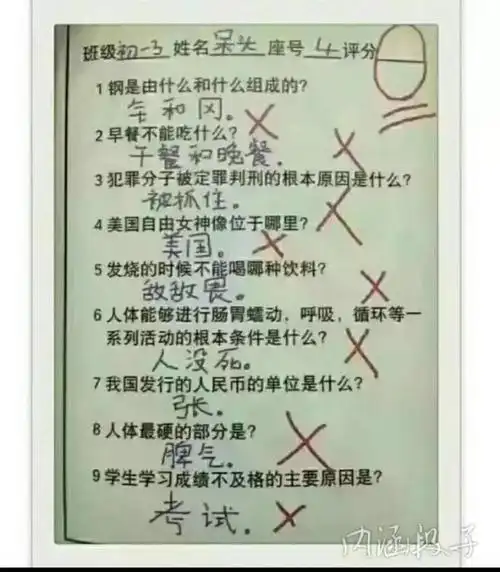 班级初一3 姓名呆头 座号4 评分0
1 钢是由什么和什么组成的?
钅和冈。
2 早餐不能吃什么?
午餐和晚餐.
3 犯罪分子被定罪判刑的根本原因是什么?
被抓住.
4 美国自由女神像位于哪里?
美国。
5 发烧的时候不能喝哪种饮料?
敌敌畏。
6 人体能够进行肠胃蠕动,呼吸,循环等一
系列活动的根本条件是什么?
人没死。
7 我国发行的人民币的单位是什么?
张.
8 人体最硬的部分是?
脾气.
9 学生学习成绩不及格的主要原因是?
考试.
内涵段子